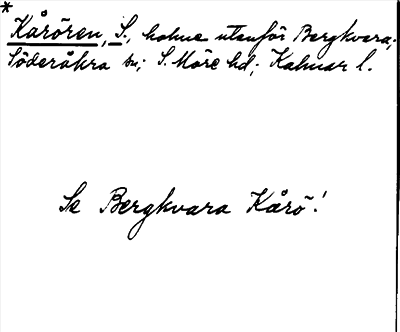 * Kårören, S., holme utanför Bergkvara;
Söderåkra sn; S. Möre hd; Kalmar l.
Se Bergkvara Kårö!